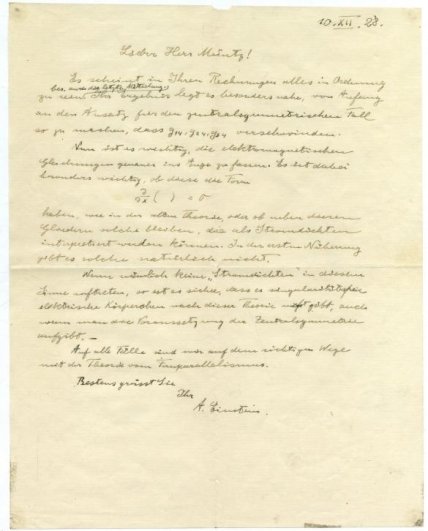 10. XII. 28.
Lieber Herr Müntz!
Es scheint in Ihren Rechnungen alles in Ordnung
bes. auch der letzten Mitteilung
zu sein. Ihr Ergebnis legt es besonders nahe, von Anfang
an den Ansatz für den zentralsymmetrischen Fall
so zu machen, dass g14, g24, g34 verschwinden.
Nun ist es wichtig, die elektromagnetischen
Gleichungen genauer ins Auge zu fassen. Es ist dabei
besonders wichtig, ob diese die Form
∂/∂x ( ) = 0
haben, wie in der alten Theorie, oder ob neben diesen
Gliedern solche bleiben, die als Stromdichten
interpretiert werden können. In der ersten Näherung
gibt es solche natürlich nicht.
Wenn nämlich keine „Stromdichten" in diesem
Sinne auftreten, so ist es sicher, dass es singularitätsfreie
elektrische Körperchen nach dieser Theorie nicht gibt, auch
wenn man die Voraussetzung der Zentralsymmetrie
aufgibt. —
Auf alle Fälle sind wir auf dem richtigen Wege
mit der Theorie vom Fernparallelismus.
Bestens grüsst Sie
Ihr
A. Einstein.